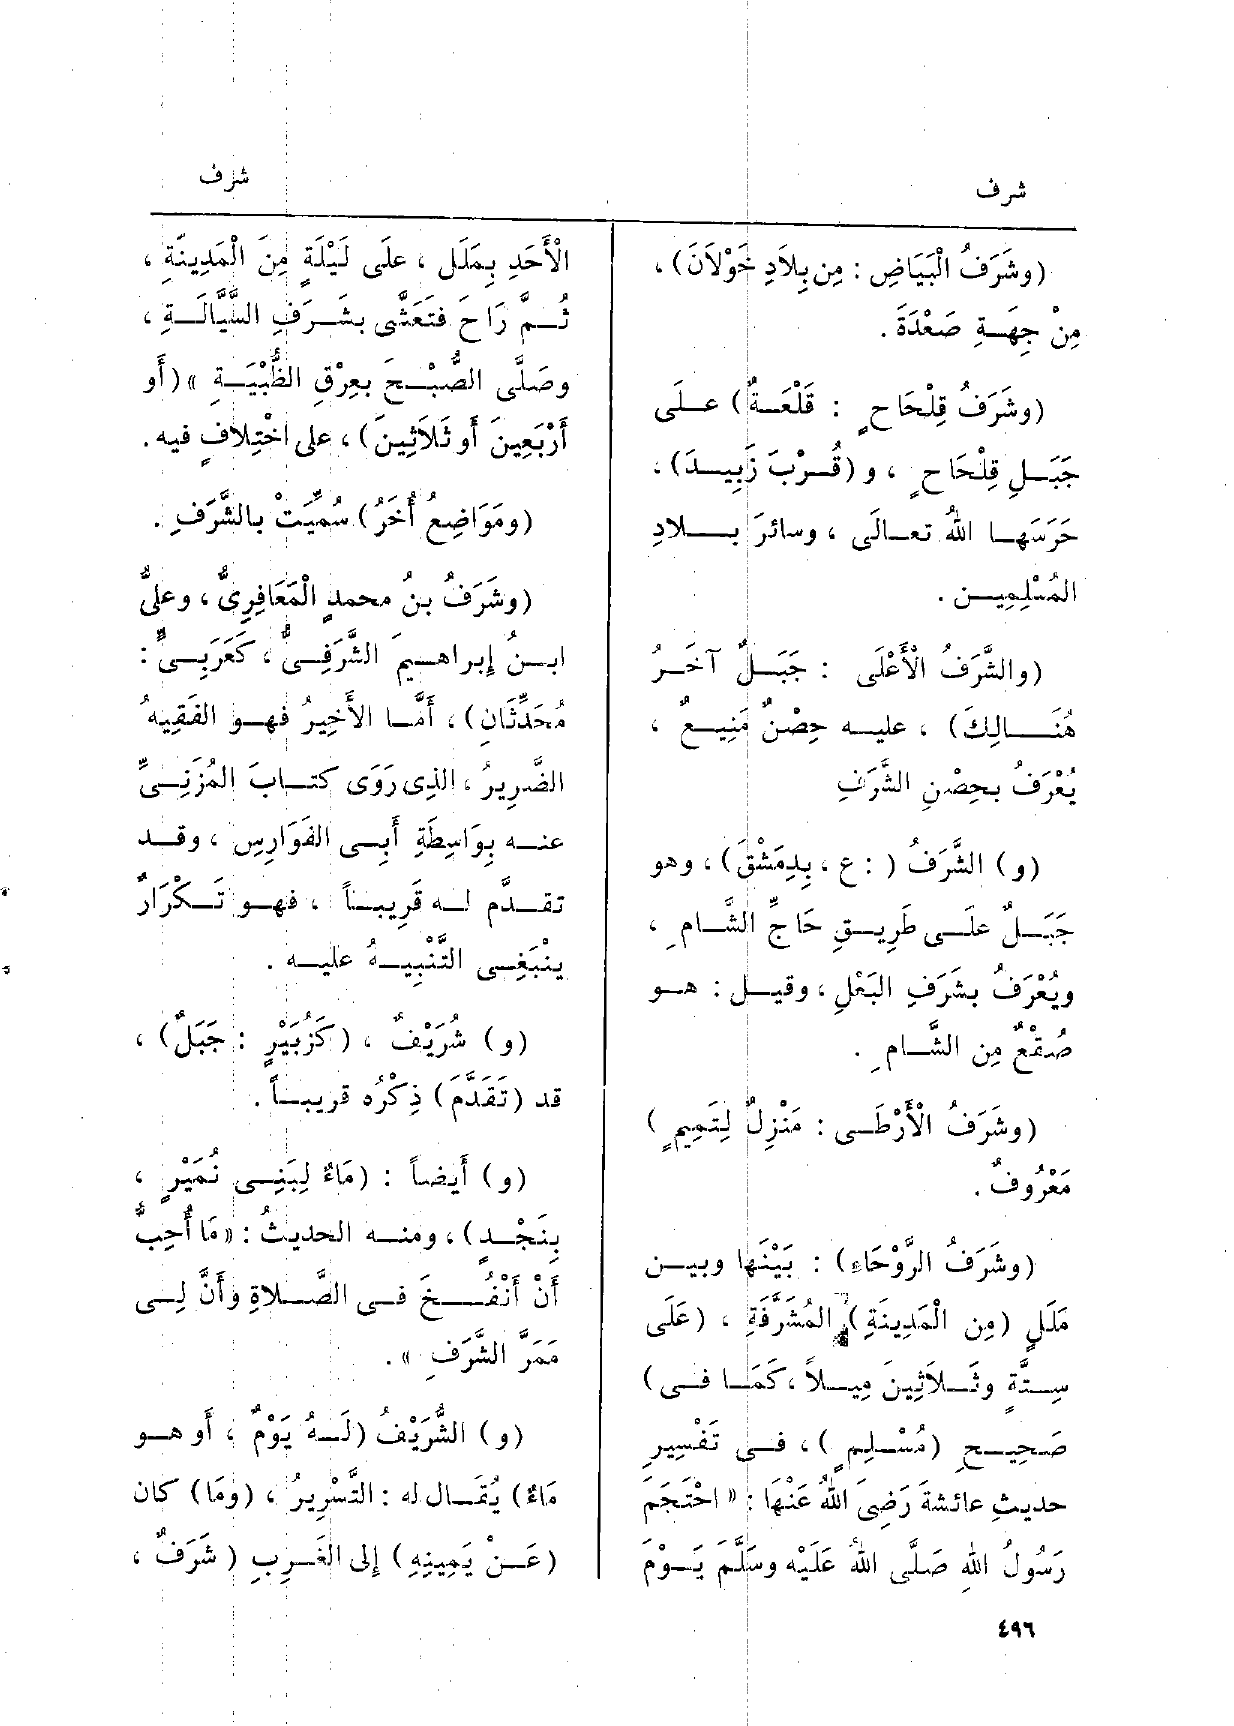 شرف
شرف
(وشَرَفُ الْبَيَاضِ : مِن بِلَادِ خَوْلَانَ) ،
مِنْ جِهَـةِ صَعْدَةَ .
(وشَرَفُ قِلْحَاحٍ : قَلْعَـةٌ) عـلَـى
جَبَـلِ قِلْحَاحٍ ، و (قُـرْبَ زَبِيـدَ) ،
حَرَسَهـا اللهُ تعـالَى ، وسائرَ بـلادِ
المُسْلِمِيـن .
(والشَّرَفُ الْأَعْلَى : جَبَـلٌ آخَـرُ
هُنَـالِكَ) ، عليـه حِصْنٌ مَنِيـعٌ ،
يُعْرَفُ بـحِصْنِ الشَّرَفِ
(و) الشَّرَفُ ( : ع ، بِدِمَشْقَ) ، وهو
جَبَـلٌ علَـى طَرِيـقِ حَاجِّ الشَّـامِ ،
ويُعْرَفُ بشَرَفِ البَغْلِ ، وقيـل : هـو
صُقْعٌ مِن الشَّـامِ .
(وشَرَفُ الْأَرْطَـى : مَنْزِلٌ لِتَمِيمٍ )
مَعْرُوفٌ .
(وشَرَفُ الرَّوْحَاءِ) : بَيْنَها وبيـن
مَلَلٍ (مِن الْمَدِينَةِ) المُشَرَّفَةِ ، (عَلَى
سِـتَّةٍ وثَـلَاثِينَ مِيـلاً ، كَمَـا فـى)
صَحِيـحِ (مُسْـلِمٍ ) ، فـى تَفْسِيرِ
حديثِ عائشةَ رَضِىَ اللهُ عَنْهَا : « احْتَجَمَ
رَسُولُ اللهِ صَلَّى اللهُ عَلَيْه وسَلَّمَ يَـوْمَ
الْأَحَدِ بِمَلَلٍ ، علَى لَيْلَةٍ مِنَ الْمَدِينَةِ ،
ثُـمَّ رَاحَ فتَعَشَّى بشَـرَفِ السَّيَّالَـةِ ،
وصَلَّى الصُّبْـحَ بعِرْقِ الظُّبْيَـةِ » (أَو
أَرْبَعِينَ أَو ثَلَاثِينَ) ، على اخْتِلافٍ فيه .
(ومَوَاضِعُ أُخَرُ) سُمِّيَتْ بالشَّرَفِ .
(وشَرَفُ بنُ محمدٍ الْمَعَافِرِىُّ ، وعلىُّ
ابـنُ إبراهـيمَ الشَّرَفِـىُّ ، كعَرَبِـىٍّ :
مُحَدِّثَانِ) ، أَمَّـا الأَخِيرُ فهـو الفَقِيهُ
الضَّرِيرُ ، الذِى رَوَى كتـابَ المُزَنِـىِّ
عنـه بِوَاسِطَةِ أَبِـى الفَوَارِسِ ، وقـد
تقـدَّم لـه قَرِيبـاً ، فهـو تَـكْرَارٌ
ينْبَغِـى التَّنْبِيـهُ عليـه .
(و) شُرَيْفٌ ، (كَزُبَيْرٍ : جَبَلٌ) ،
قد (تَقَدَّمَ) ذِكْرُه قريبـاً .
(و) أَيضاً : (مَاءٌ لِبَنِـى نُمَيْرٍ ،
بِنَجْـدٍ) ، ومنـه الحديثُ : « مَا أُحِبُّ
أَنْ أَنْفُـخَ فـى الصَّـلاةِ وأَنَّ لِـى
مَمَرَّ الشَّرَفِ » .
(و) الشُّرَيْفُ (لَـهُ يَوْمٌ ، أَو هـو
مَاءٌ) يُقَـال له : التَّسْرِيرُ ، (ومَا) كان
(عَـنْ يَمِينِهِ) إلى الغَـرِبِ ( شَرَفٌ ،
٤٩٦